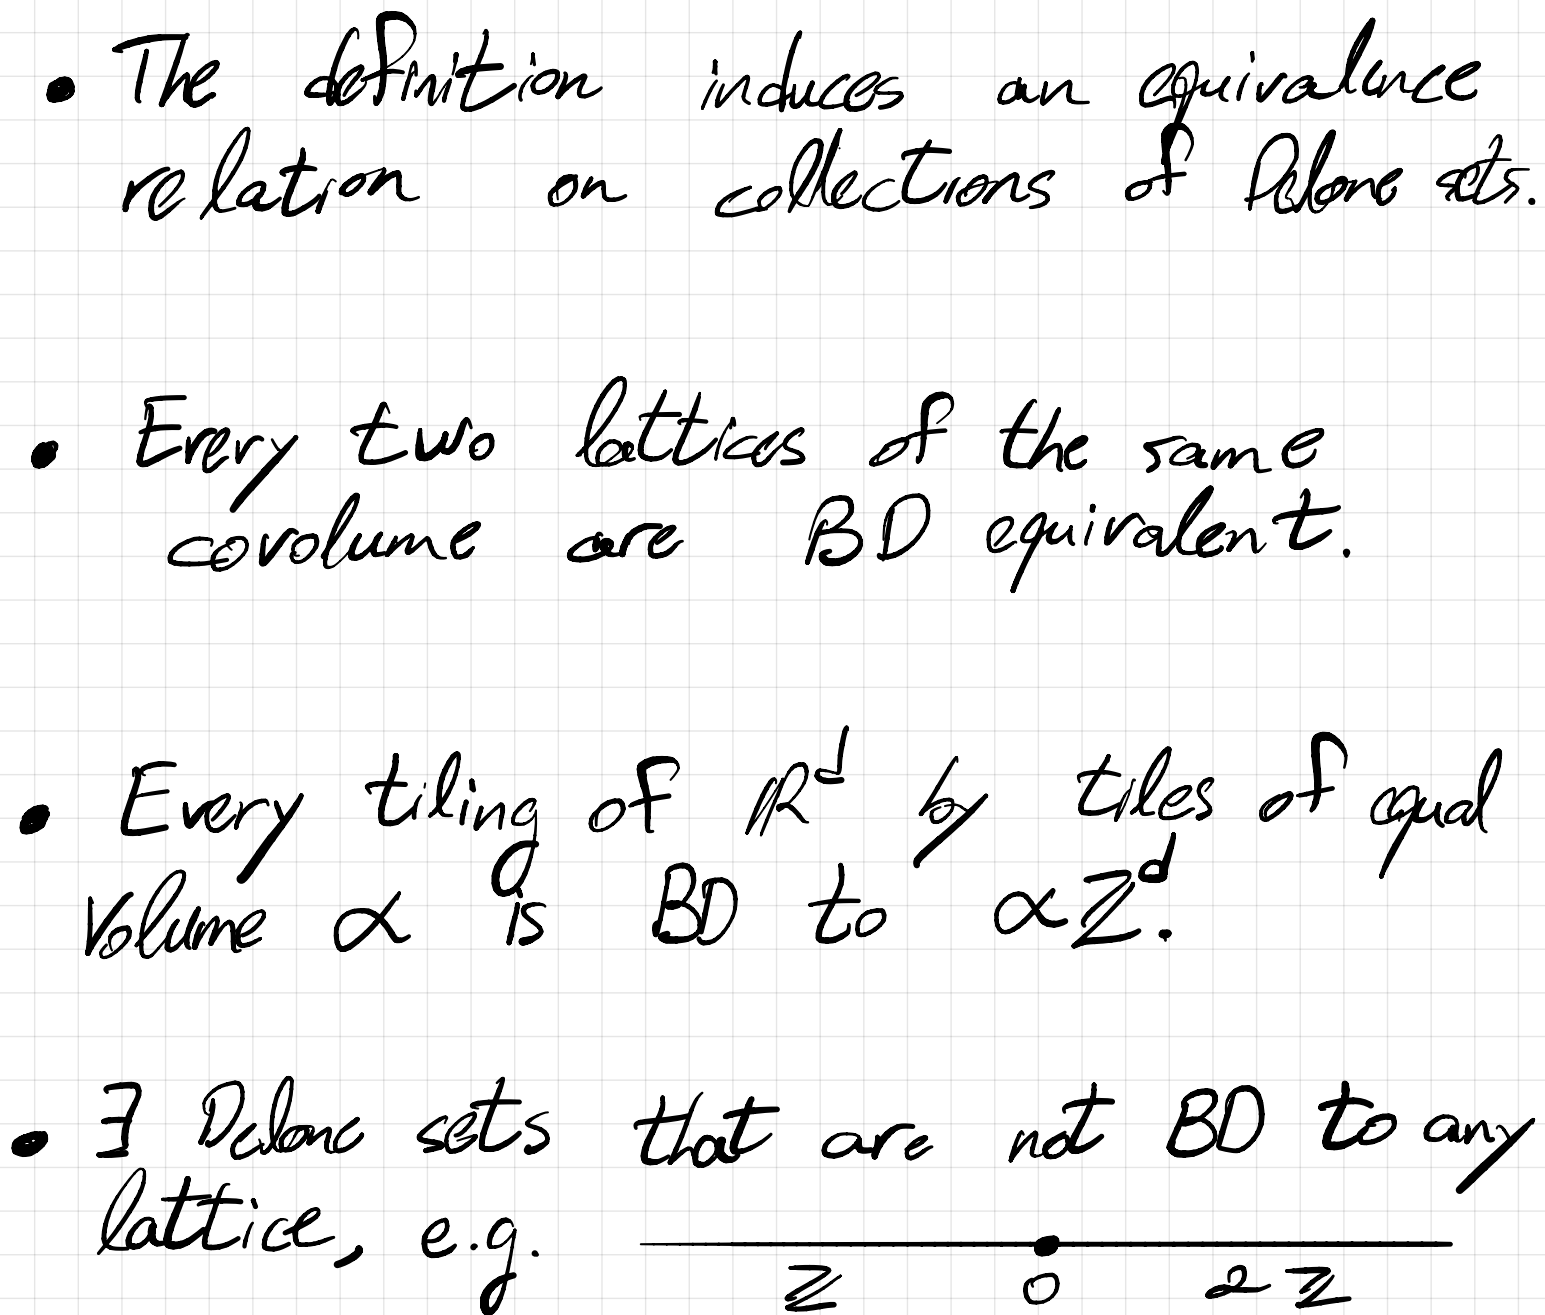 • The definition induces an equivalence
relation on collections of Delone sets.
• Every two lattices of the same
covolume are BD equivalent.
• Every tiling of ℝᵈ by tiles of equal
volume α is BD to αℤᵈ.
• ∃ Delone sets that are not BD to any
lattice, e.g.
ℤ 0 2ℤ